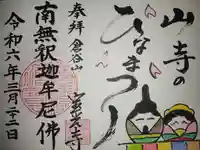 山寺の
ひなまつり
奉拝
倉谷山
南無釈迦牟尼佛
令和六年三月二十二日